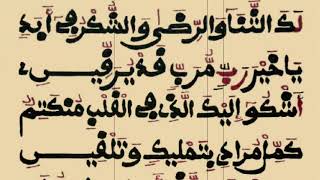 لك الثناء والرضى والشكر في أبد
يا خير رب مرب قد يرقيني
أشكو إليك الذي في القلب منكتم
كمل مرادي بتمليك وتلقين